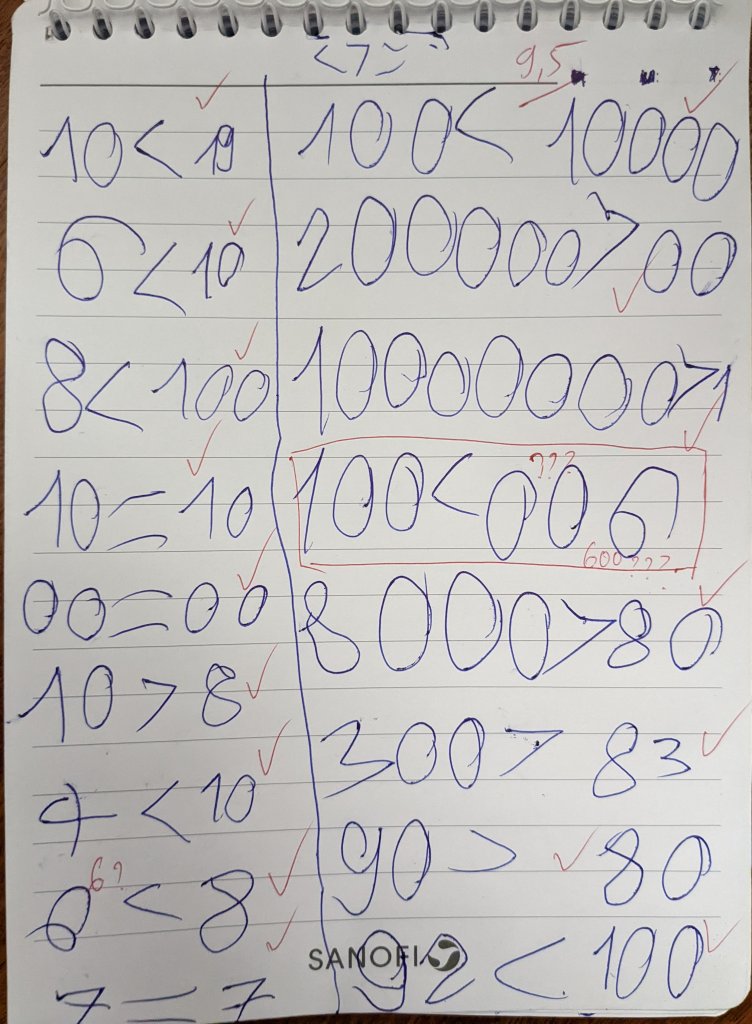 < > =
9,5
10 < 19
6 < 10
8 < 100
10 = 10
00 = 00
10 > 8
4 < 10
6?
6 < 8
7 = 7
100 < 10000
200000 > 00
10000000 > 1
???
100 < 006
600???
8000 > 80
300 > 83
90 > 80
92 < 100
SANOFI